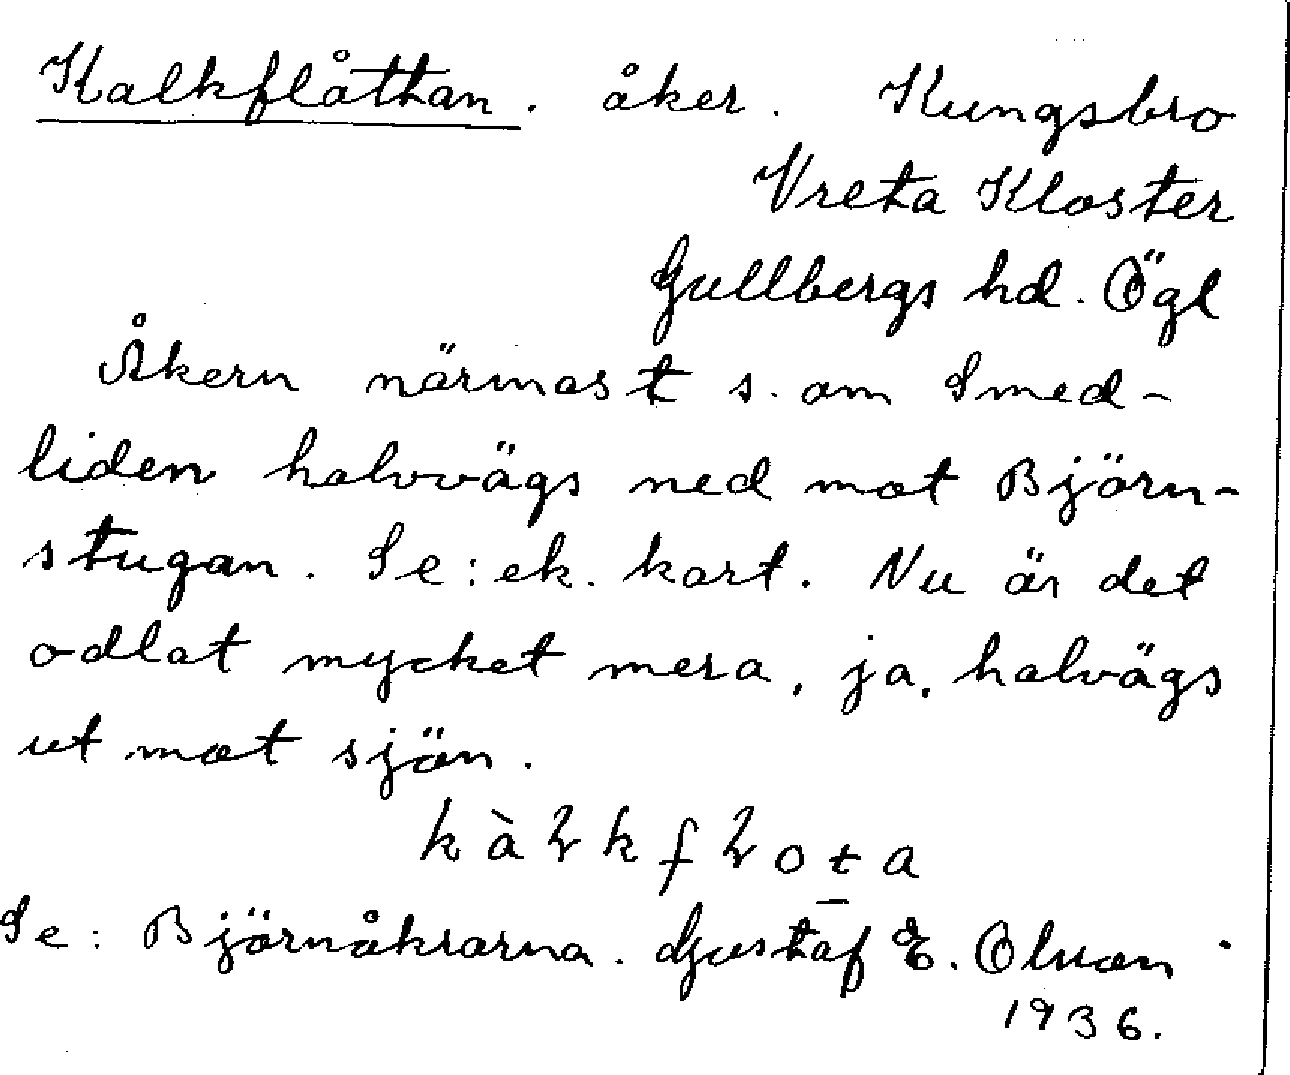 Kalkflåttan. åker. Kungsbro
Vreta Kloster
Gullbergs hd. Ögl
Åkern närmast s. om Smed-
liden halvvägs ned mot Björn-
stugan. Se: ek. kart. Nu är det
odlat mycket mera, ja, halvägs
ut mot sjön.
kàɭkfɭot̲a
Se: Björnåkrarna. Gustaf E. Olson
1936.